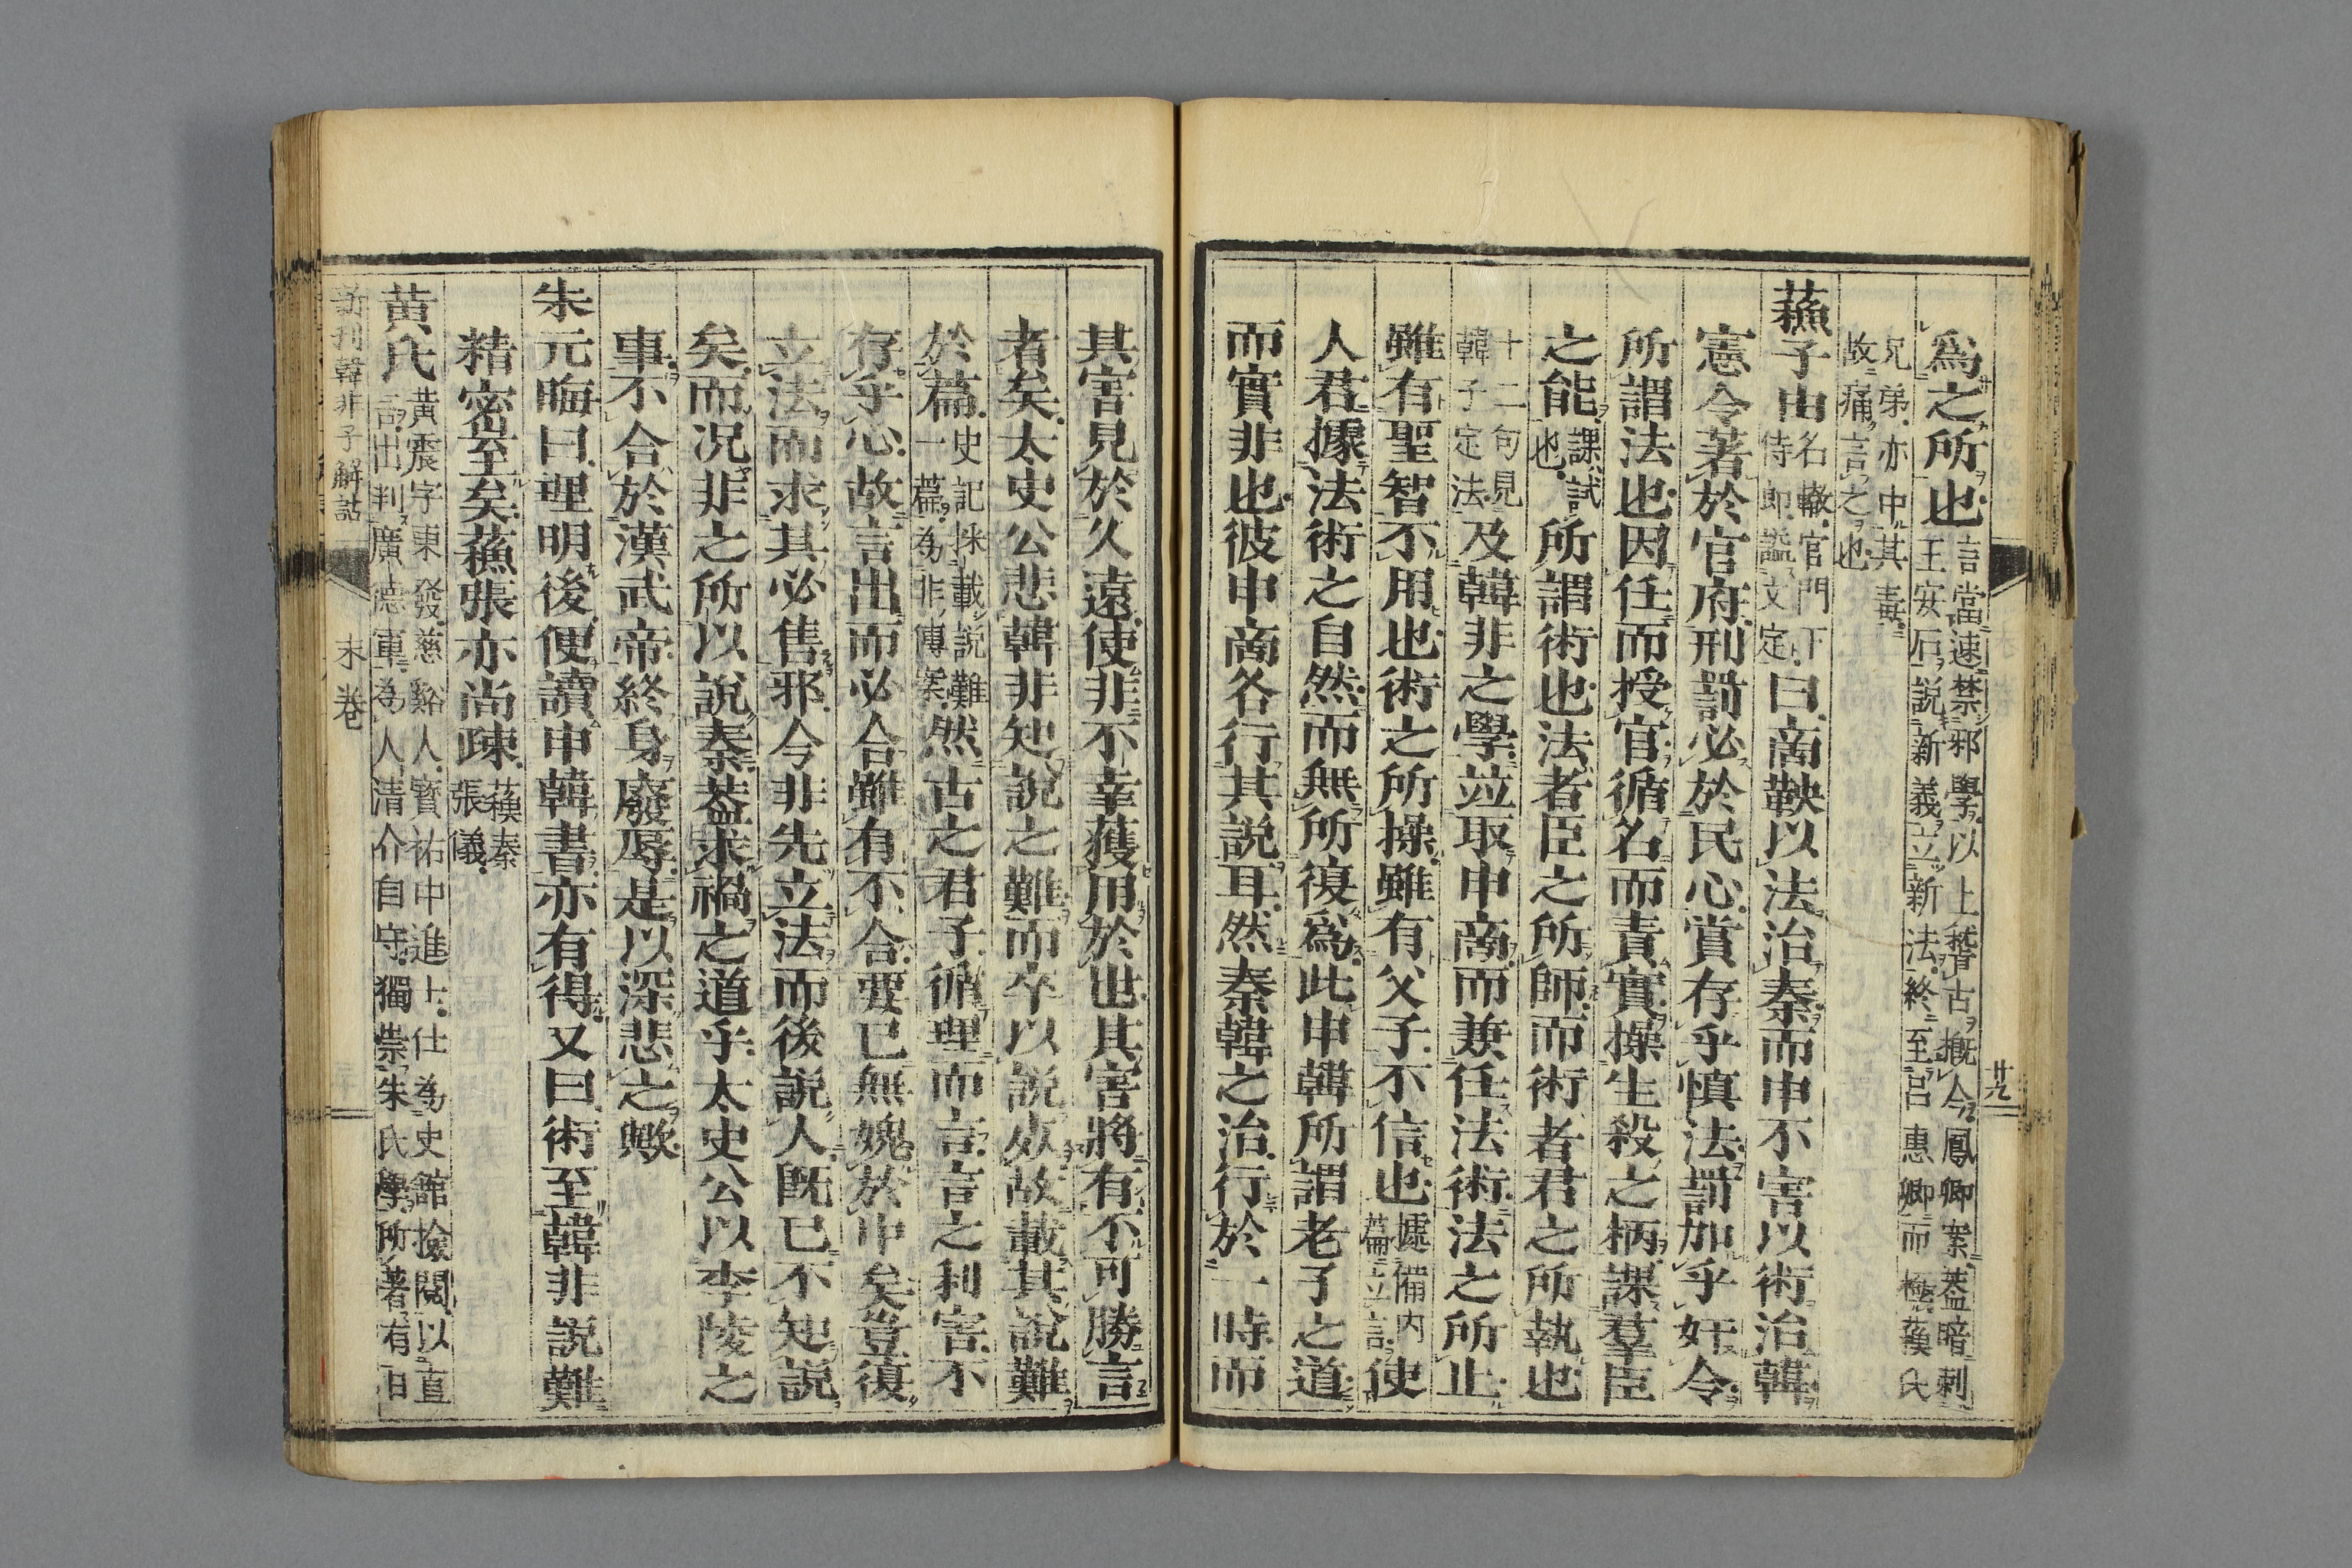 爲之所也言當速禁邪學以上稽古槪今鳳卿案蓋暗刺王安石說新義立新法終至呂惠卿而極蘓氏
兄弟亦中其毒故痛言之也
蘓子由名轍官門下侍郎謚文定曰商鞅以法治秦而申不害以術治韓
憲令著於官府刑罰必於民心賞存乎慎法罰加乎奸令
所謂法也因任而授官循名而責實操生殺之柄課羣臣
之能課試也所謂術也法者臣之所師而術者君之所執也
十二句見韓子定法及韓非之學並取申商而兼任法術法之所止
雖有聖智不用也術之所操雖有父子不信也據備內篇立言使
人君據法術之自然而無所復爲此申韓所謂老子之道
而實非也彼申商各行其說耳然秦韓之治行於一時而
其害見於久遠使非不幸獲用於世其害將有不可勝言
者矣太史公悲韓非知說之難而卒以說死故載其說難
於篇史記採載說難一篇為非傳案然古之君子循理而言言之利害不
存乎心故言出而必合雖有不合要已無媿於中矣豈復
立法而求其必售邪今非先立法而後說人既已不知說
矣而況非之所以說秦蓋求禍之道乎太史公以李陵之
事不合於漢武帝終身廢辱是以深悲之歟
朱元晦曰理明後便讀申韓書亦有得又曰術至韓非說難
精密至矣蘓張亦尚疎蘓秦張儀
黃氏黃震字東發慈谿人寶祐中進士仕為史館撿閱以直言出判廣德軍為人清介自守獨崇朱氏學所著有日
新刊韓非子解詁 末卷
廿九